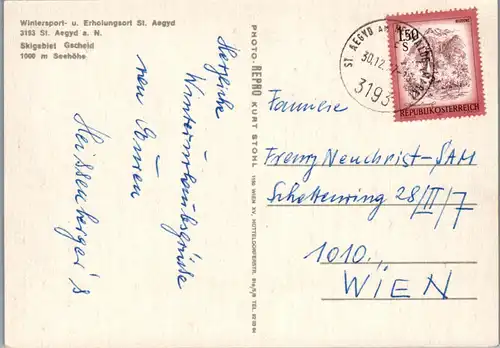 Wintersport- u. Erholungsort St. Aegyd
3193 St. Aegyd a. N.
Skigebiet Gscheid
1000 m Seehöhe
Herzliche
Winterurlaubsgrüße
von Euren
Heissenberger's
PHOTO-REPRO KURT STOHL
1150 WIEN XV, HÜTTELDORFERSTR.
ST. AEGYD AM
30.12.
3193
1.50
S
REPUBLIK ÖSTERREICH
Familie
Franz Neuchrist-SAM
Schottenring 28/III/7
1010.
WIEN